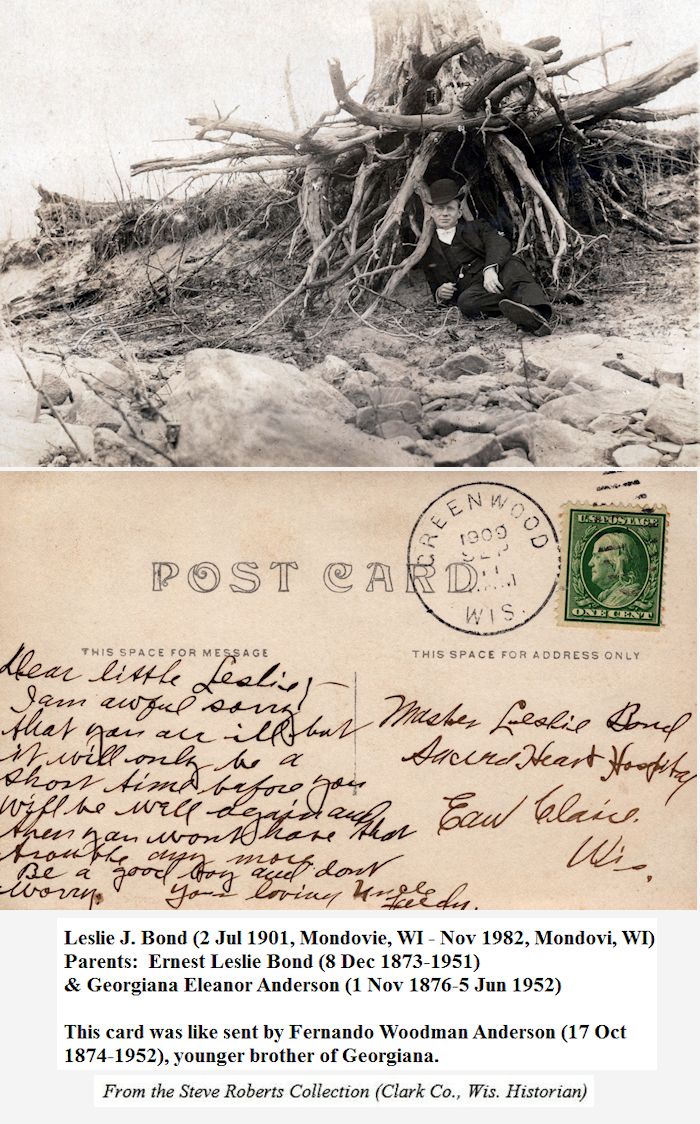 POST CARD
GREENWOOD
1909
SEP
11
WIS.
U.S. POSTAGE
ONE CENT
THIS SPACE FOR MESSAGE
THIS SPACE FOR ADDRESS ONLY
Dear little Leslie;—
I am awful sorry
that you are ill but
it will only be a
short time before you
will be well again and
then you wont have that
trouble any more
Be a good boy and dont
worry. Your loving Uncle
Master Leslie Bond
Sacred Heart Hospital
Eau Claire.
Wis.
Leslie J. Bond (2 Jul 1901, Mondovie, WI - Nov 1982, Mondovi, WI)
Parents: Ernest Leslie Bond (8 Dec 1873-1951)
& Georgiana Eleanor Anderson (1 Nov 1876-5 Jun 1952)
This card was like sent by Fernando Woodman Anderson (17 Oct
1874-1952), younger brother of Georgiana.
From the Steve Roberts Collection (Clark Co., Wis. Historian)